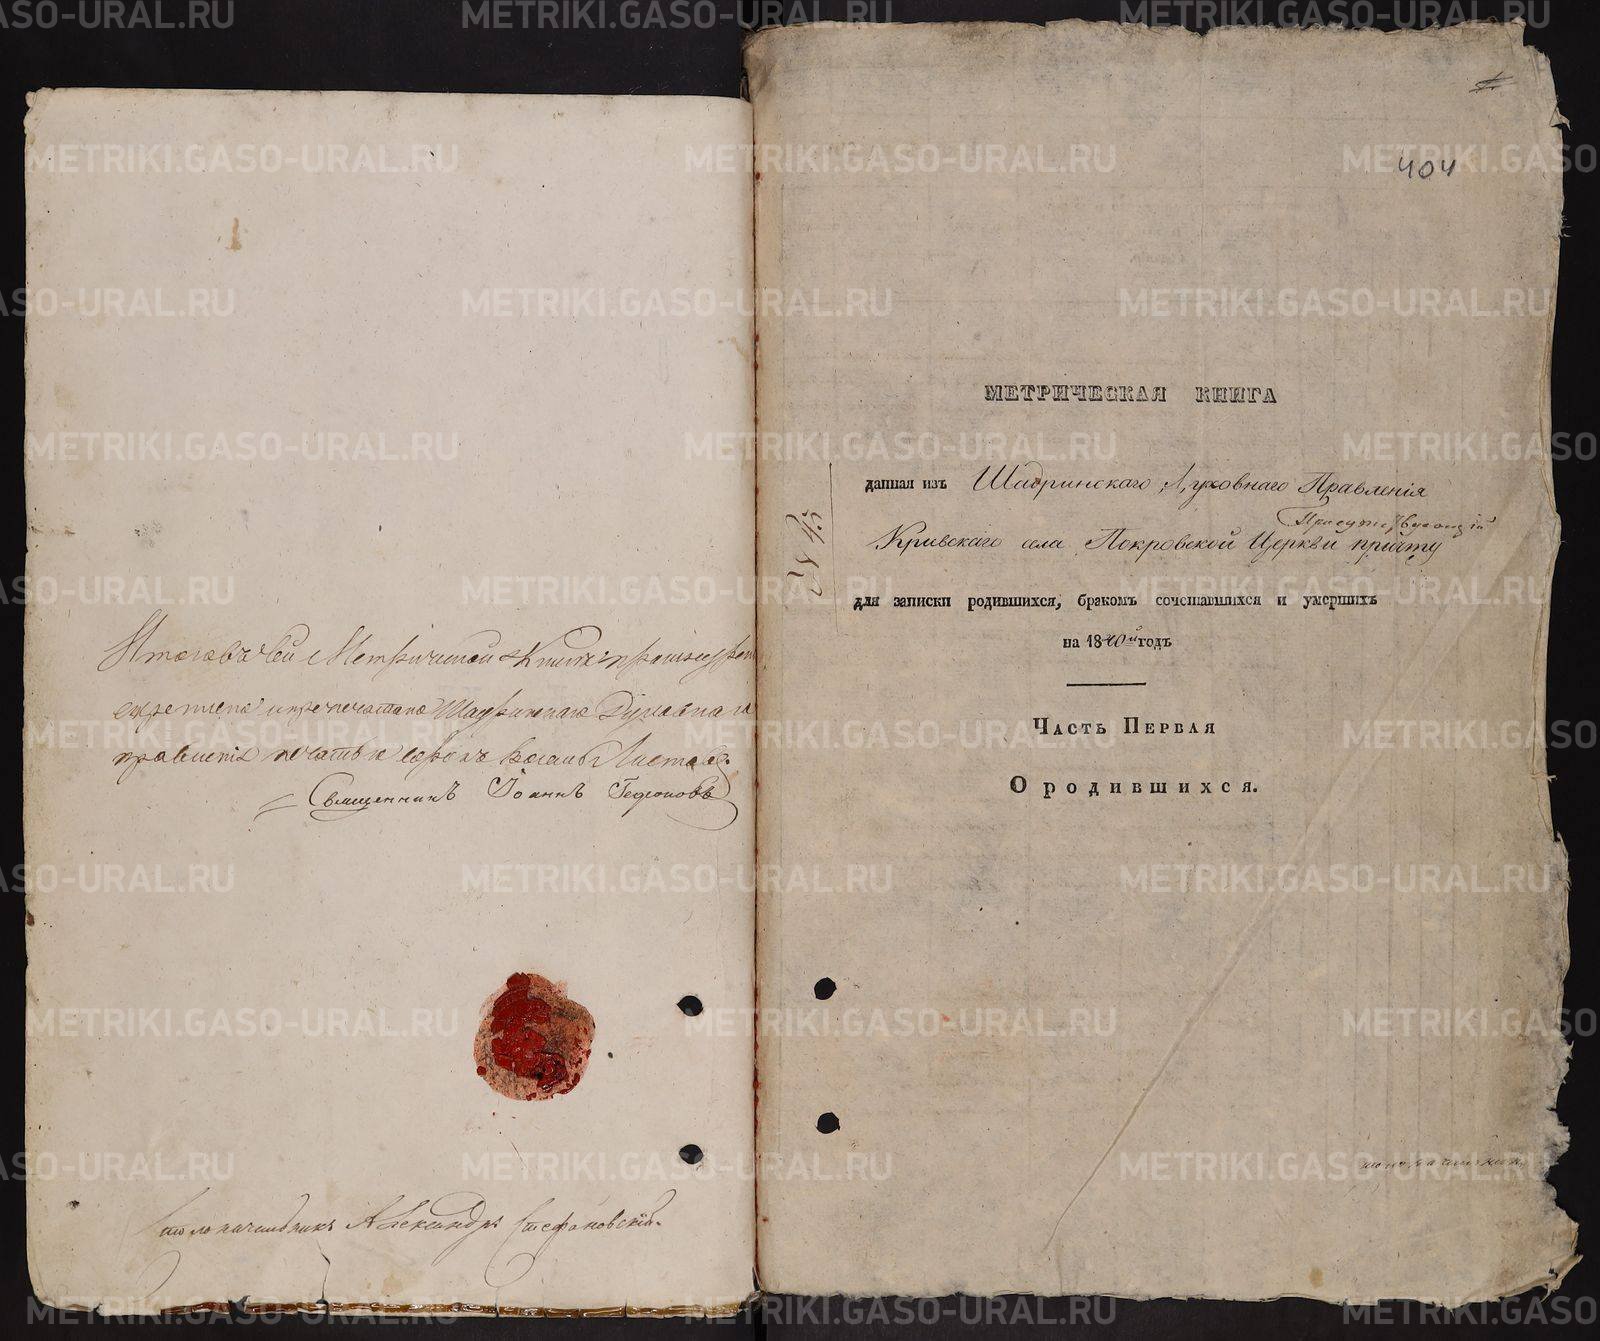 Итого въ сей Метрической Книгѣ прошнур
скреплено и припечатано Шадринскаго Духовнаго
правленія печатью сорокъ восемь Листовъ.
Священникъ Іоаннъ
Столоначальникъ Александръ Стефановскій.
404
МЕТРИЧЕСКАЯ КНИГА
данная изъ Шадринскаго Духовнаго Правленія
Кривскаго села Покровской Церкви причту
для записки родившихся, бракомъ сочетавшихся и умершихъ
на 1840й годъ
Часть Первая
О родившихся.
METRIKI.GASO-URAL.RU